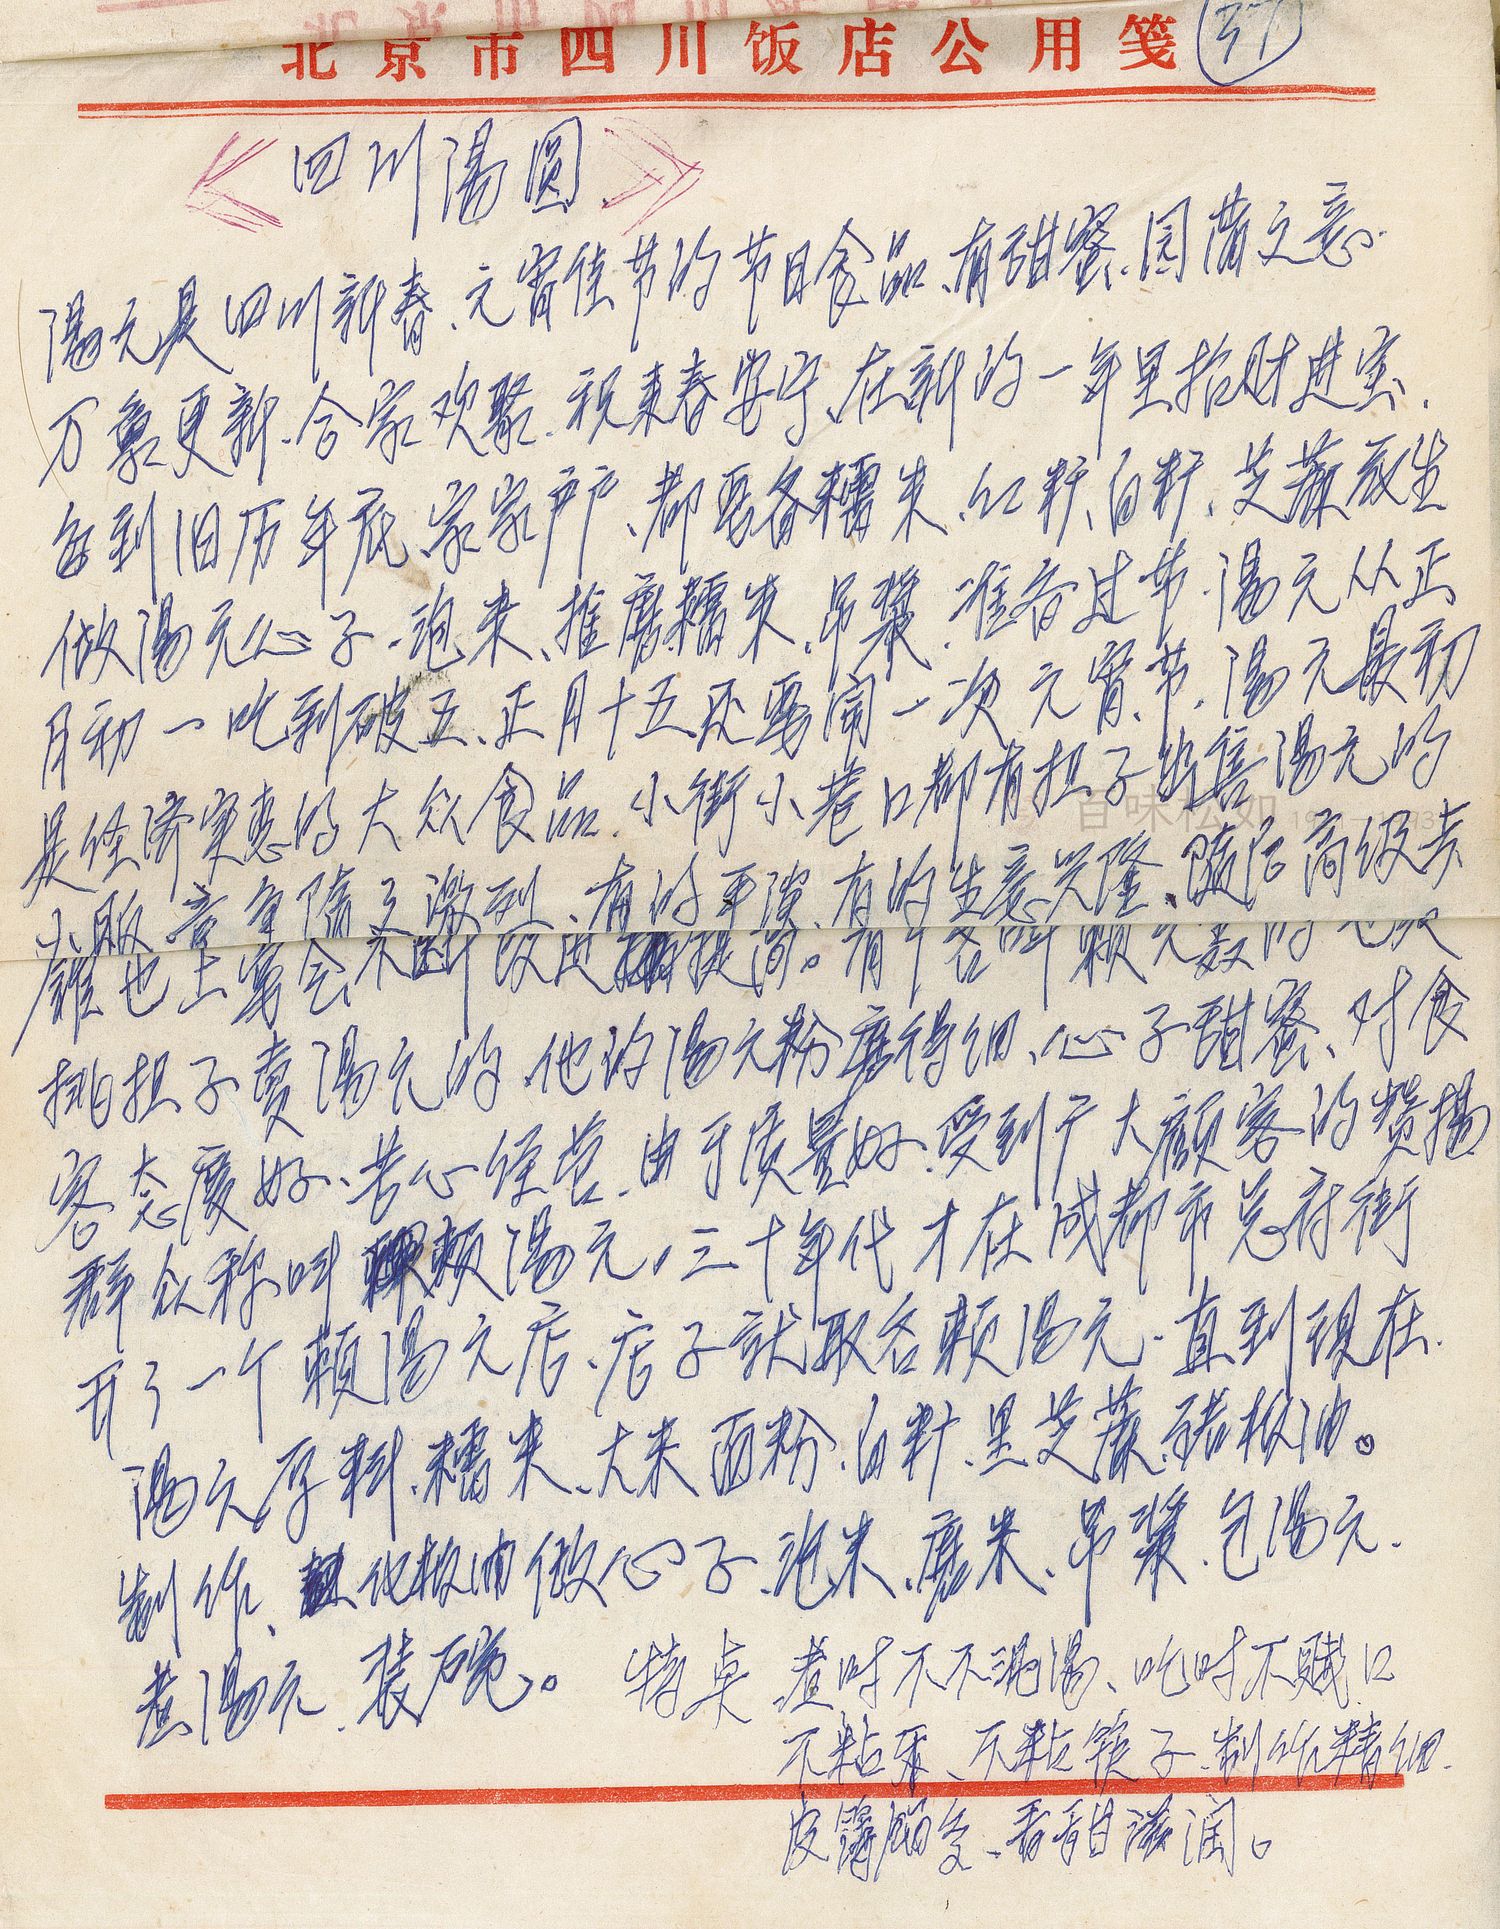 北京市四川饭店公用笺
37
《四川湯圆》
湯元是四川新春、元宵佳节的节日食品、有甜蜜、园满之意.
万象更新、合家欢聚、祝来春安宁、在新的一年里招财进宝、
每到旧历年底、家家户户、都要备糯米、红籽、白籽、芝蔴
做湯元心子、泡米、推磨糯米、吊浆、准备过节、湯元从正
月初一吃到破五、正月十五还要闹一次元宵节、湯元最初
是经济实惠的大众食品、小街小巷口都有担子出售湯元的
小贩、竞争激烈、有的平淡、有的生意兴隆、高级
也上宴会、不断改进提高。有个名叫赖元
挑担子卖湯元的、他的湯元粉磨得细、心子甜蜜、对食
客态度好、苦心经营、由于质量好、受到广大顾客的赞揚
群众称叫赖湯元、三十年代才在成都市总府街
开了一个赖湯元店、店子就取名赖湯元、直到现在.
湯元原料、糯米、大米面粉、白籽、黑芝蔴、猪板油。
制作、化板油做心子、泡米、磨米、吊浆、包湯元、
煮湯元、装碗。 特点 煮时不不混湯、吃时不腻口
不粘牙、不粘筷子、制作精细.
皮薄馅多、香甜滋润。
百味松如